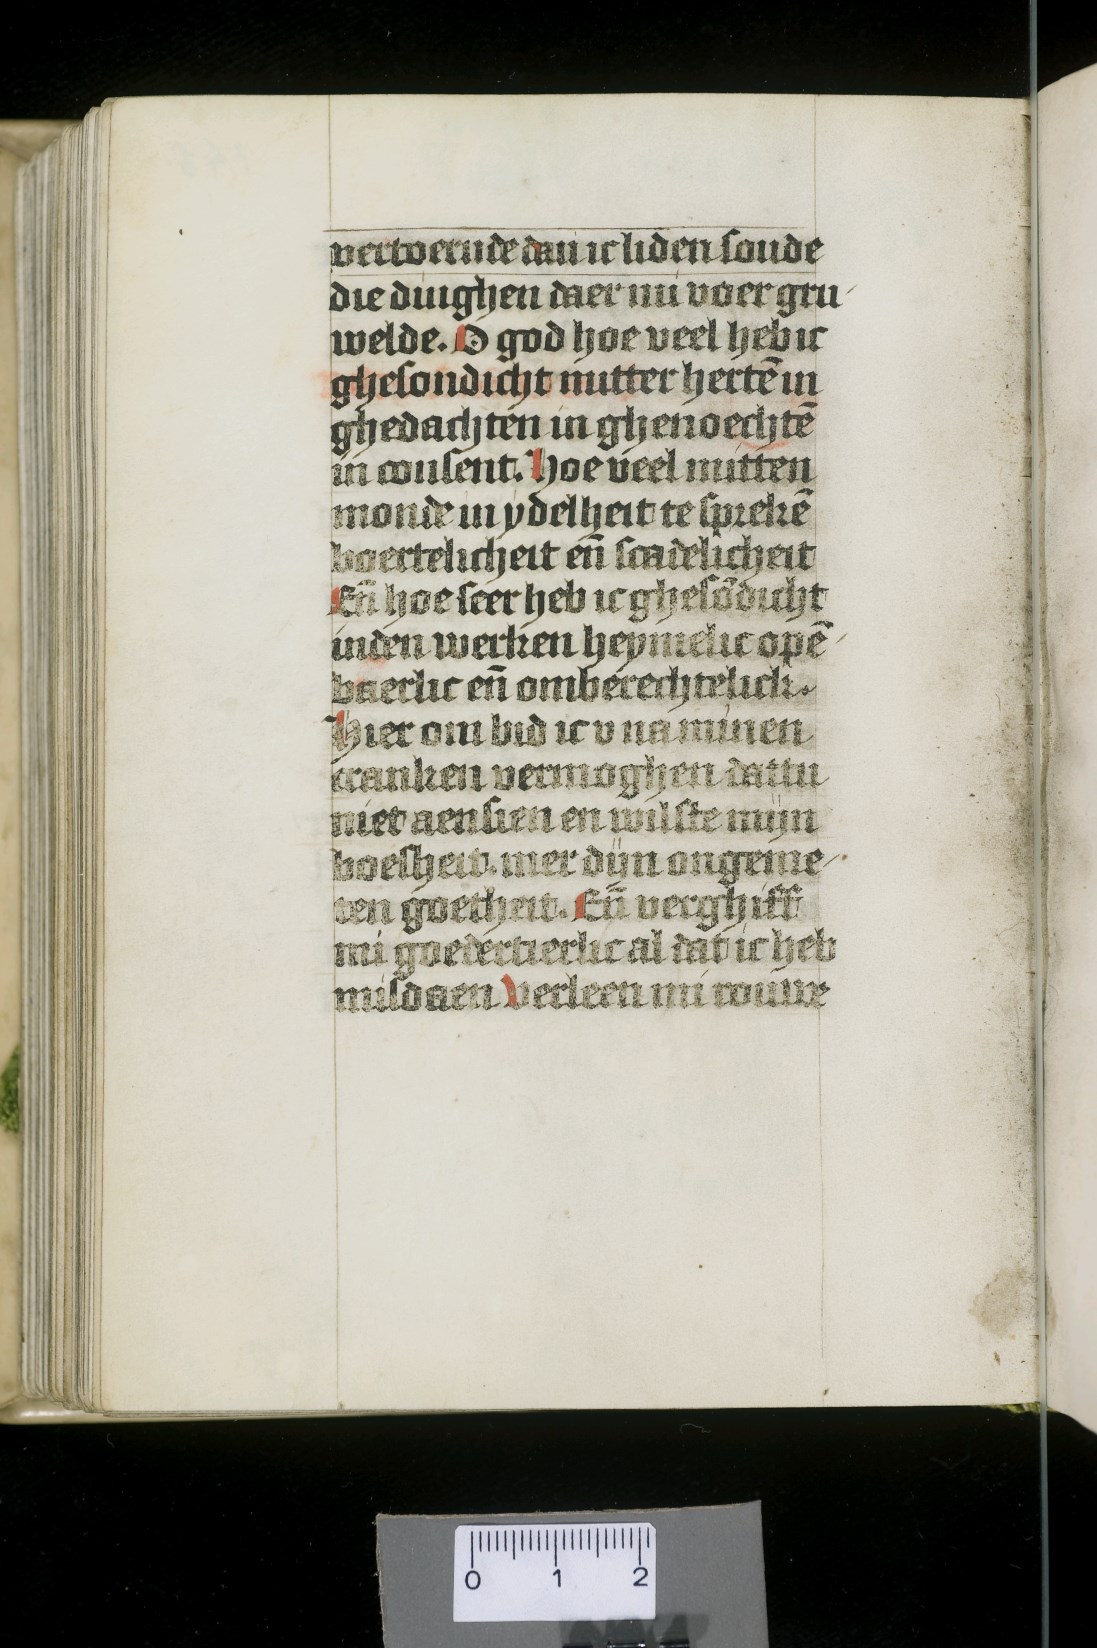 vertoernde dan ic liden soude
die dinghen daer mi voer gru-
welde. O god hoe veel heb ic
ghesondicht mitter hertē in
ghedachten in ghenoechtē
in consent. Hoe veel mitten
monde in ydelheit te sprekē
boertelicheit eñ scadelicheit
Eñ hoe seer heb ic ghesōdicht
inden werken heymelic opē-
baerlic eñ omberechtelick.
Hier om bid ic v na minen
cranken vermoghen dattu
niet aensien en wilste mijn
boesheit. mer dijn ongeme-
ten goetheit. Eñ verghiff
mi goedertierlic al dat ic heb
misdaen Verleen mi rouwe
0 1 2